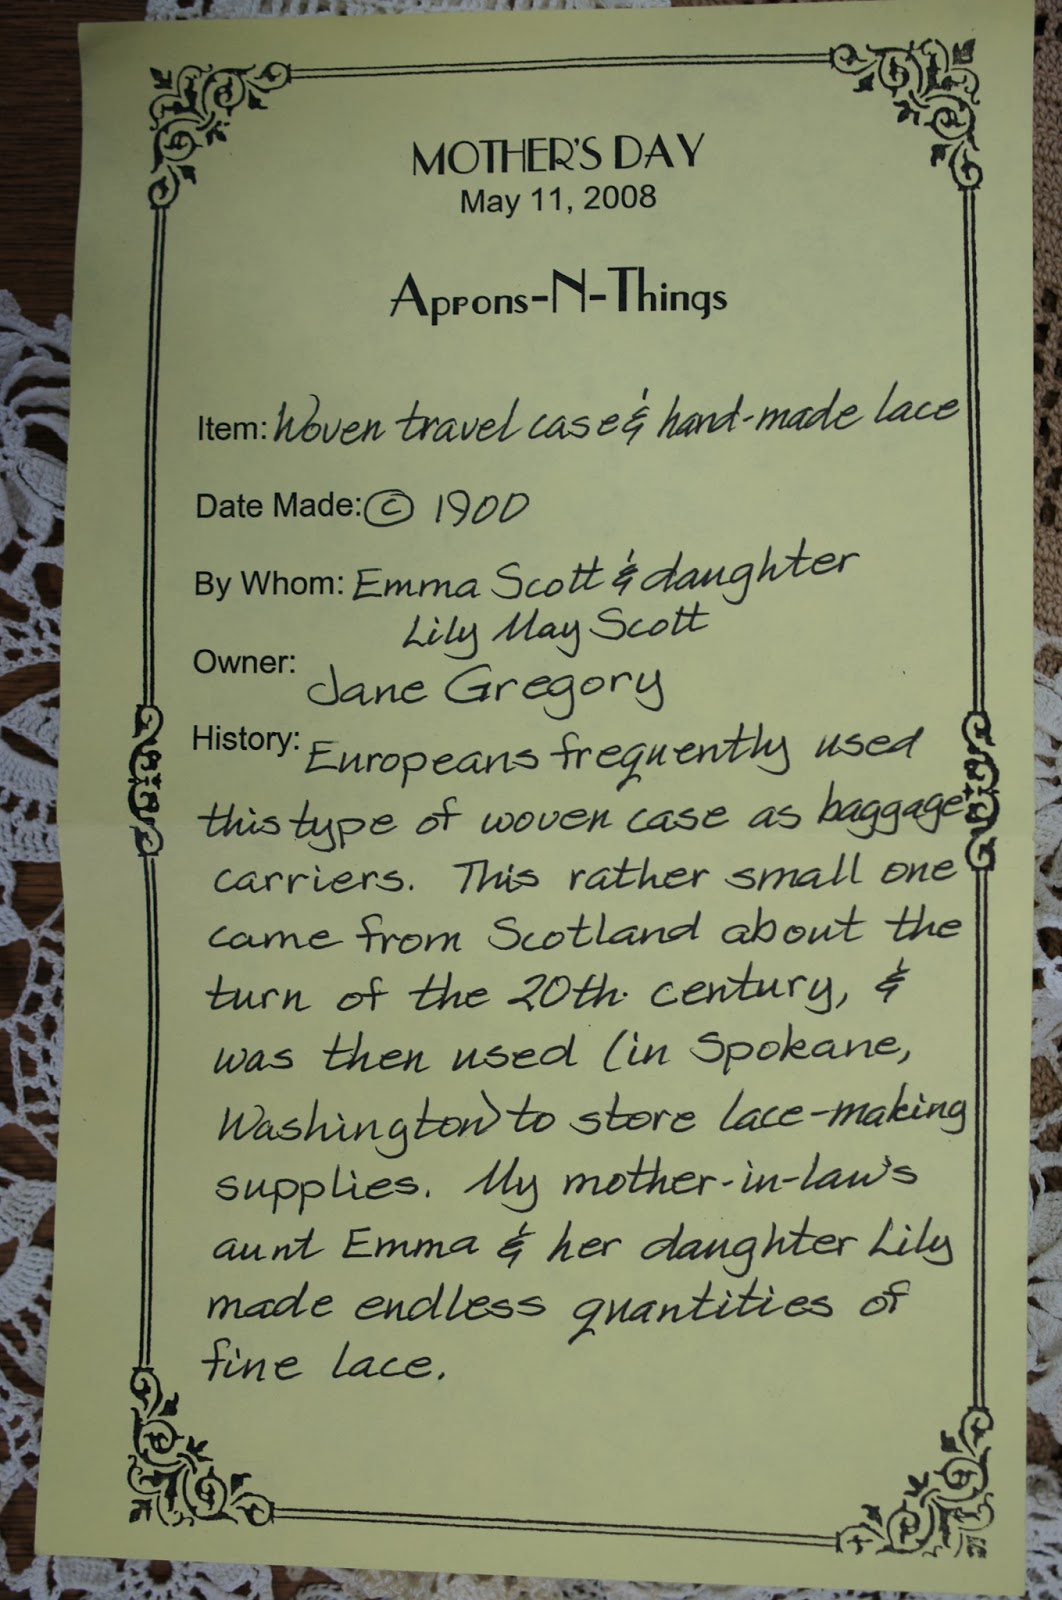 MOTHER'S DAY
May 11, 2008
Aprons-N-Things
Item: Woven travel case & hand-made lace
Date Made: © 1900
By Whom: Emma Scott & daughter
Lily May Scott
Owner: Jane Gregory
History: Europeans frequently used
this type of woven case as baggage
carriers. This rather small one
came from Scotland about the
turn of the 20th. century, &
was then used (in Spokane,
Washington) to store lace-making
supplies. My mother-in-law's
aunt Emma & her daughter Lily
made endless quantities of
fine lace.